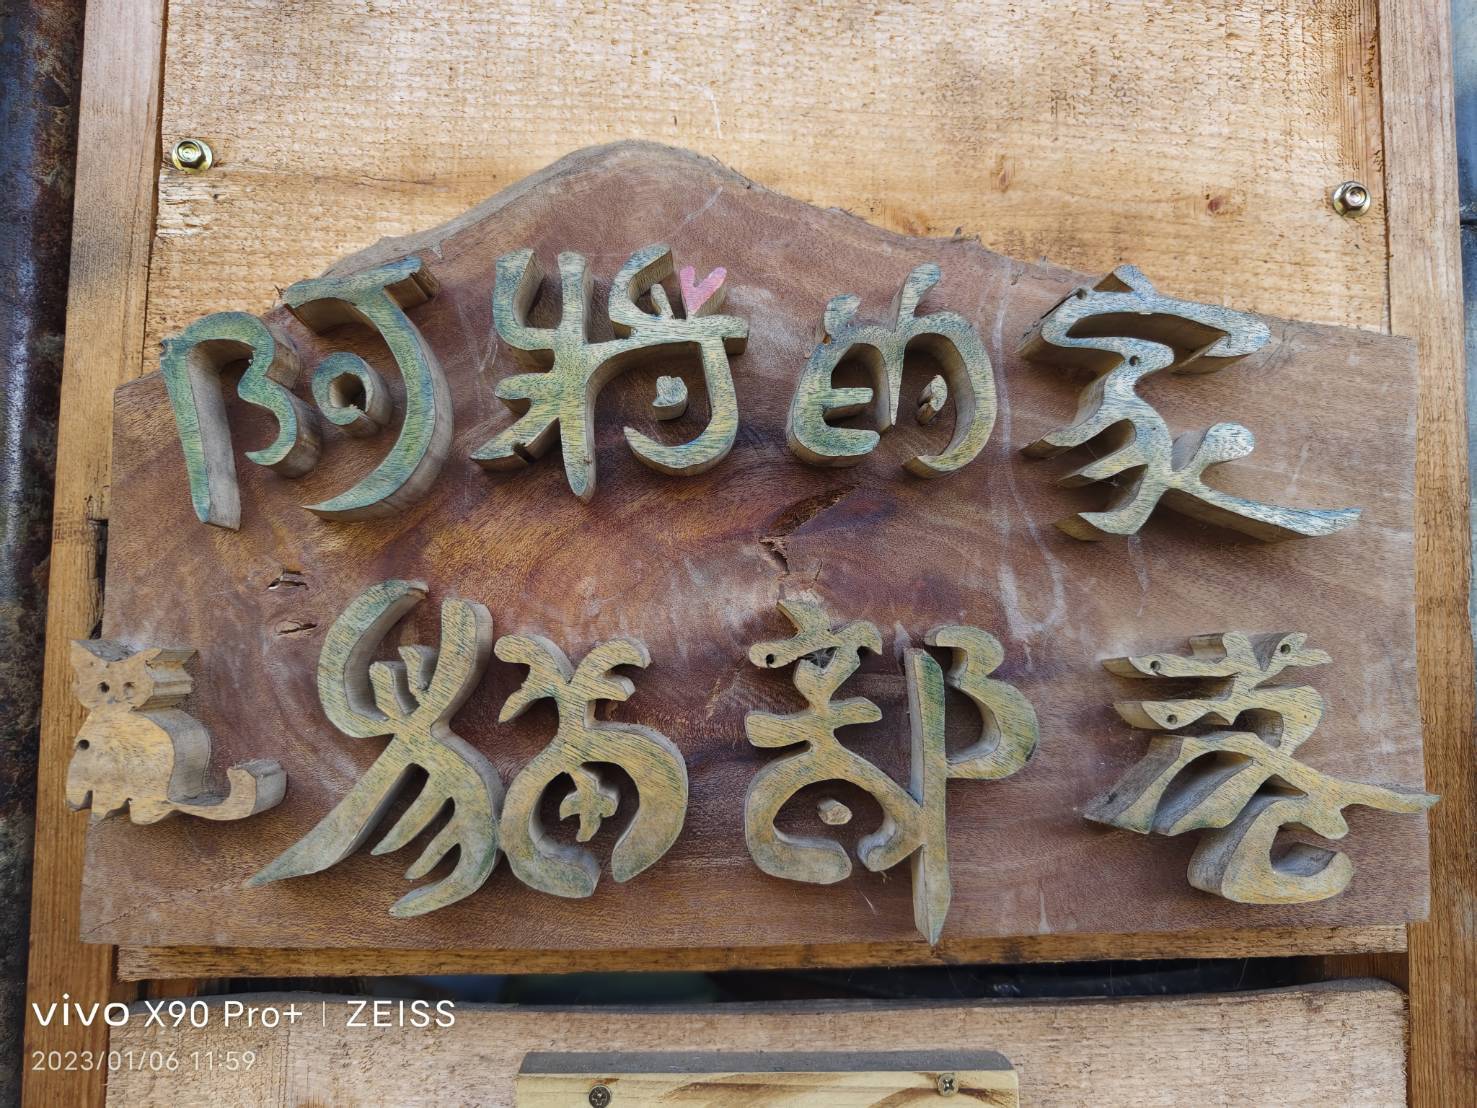 阿將的家
貓部落
vivo X90 Pro+ | ZEISS
2023/01/06 11:59